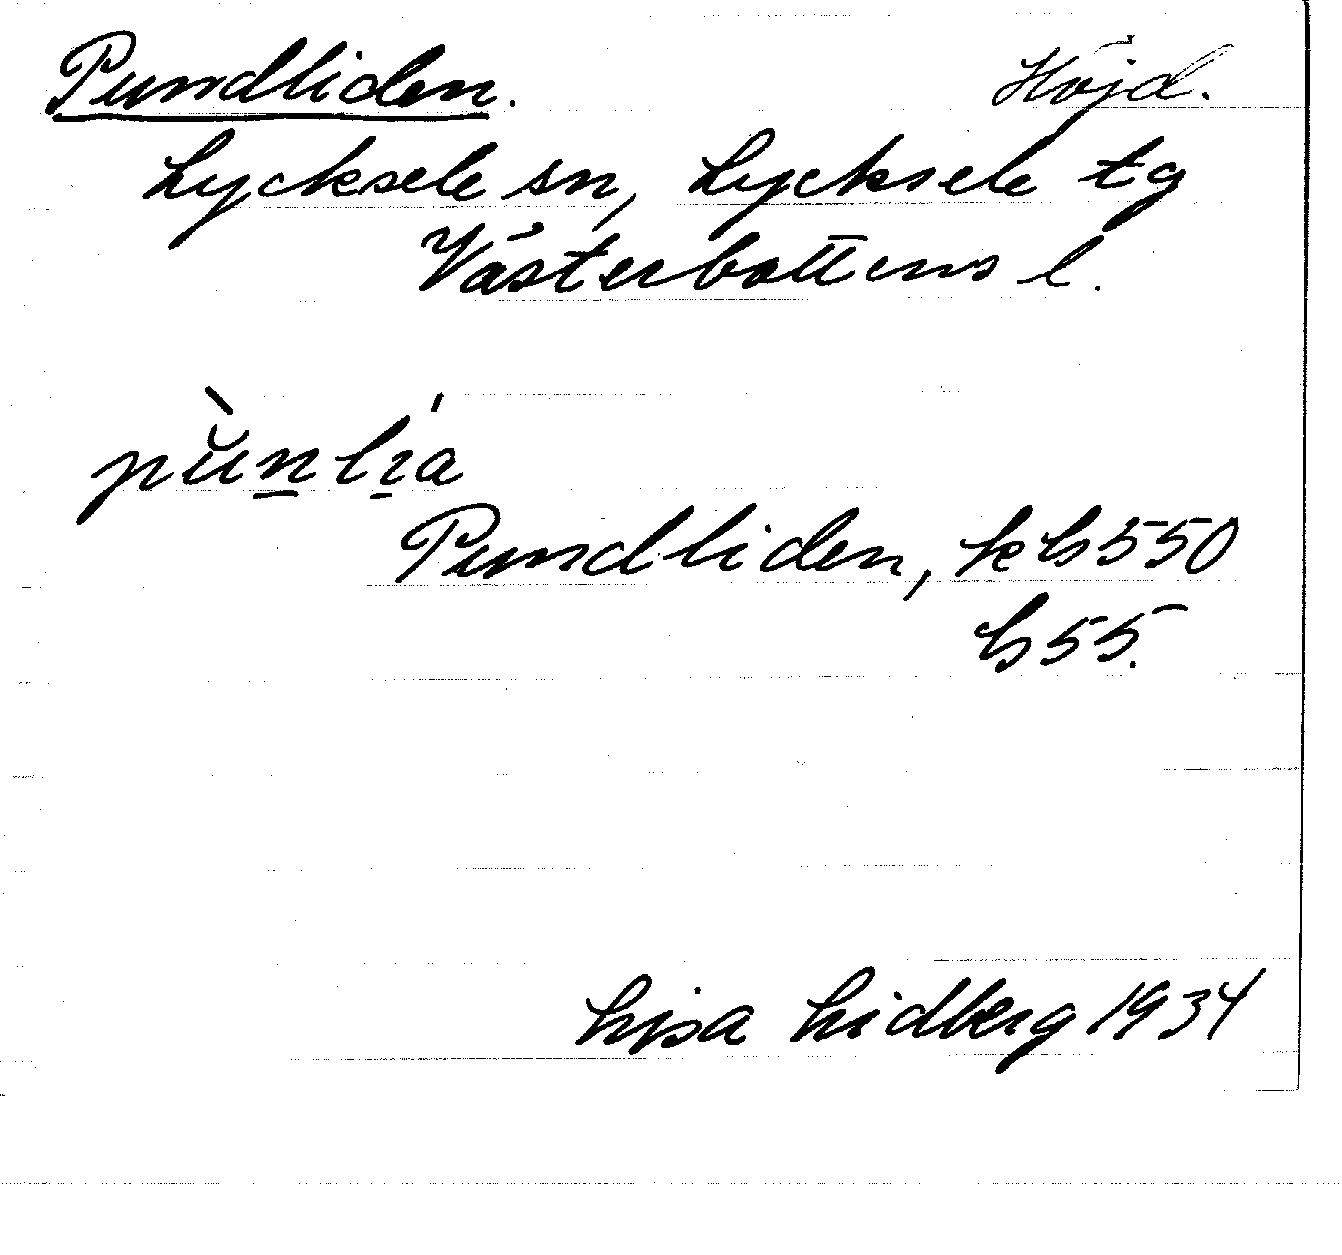 Pundliden. Höjd.
Lycksele sn, Lycksele tg
Västerbottens l.
pùn̲lı̱́a
Pundliden, kb 550
b 55.
Lisa Lidberg 1934